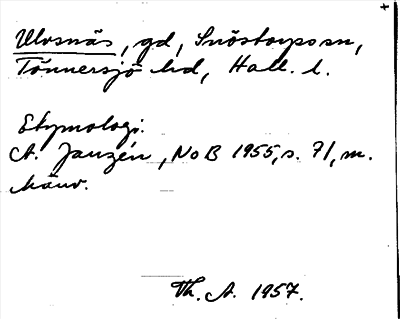 Ulvsnäs, gd, Snöstorps sn,
Tönnersjö hd, Hall. l.
Etymologi.
A. Janzén, NoB 1955, s. 71, m.
hänv.
Th. A. 1957.